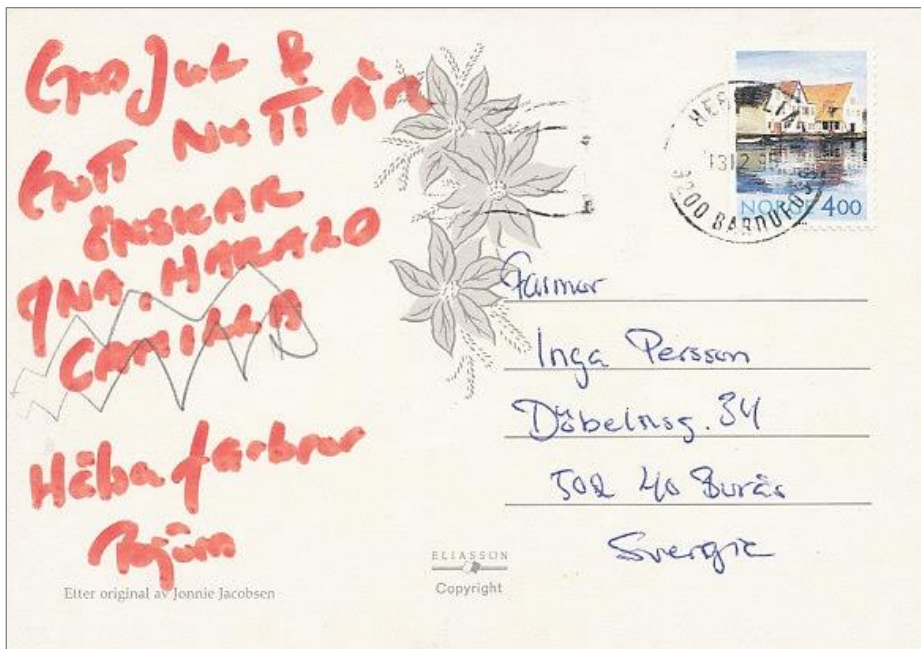 GOD JUL &
GOTT NYTT ÅR
ÖNSKAR
INA, HARALD
CAMILLA
Hälsa farbror
Björn
Etter original av Jonnie Jacobsen
ELIASSON
Copyright
NORGE 4.00
9200 BARDUFOSS
Farmor
Inga Persson
Döbelnsg. 34
502 40 Borås
Sverige